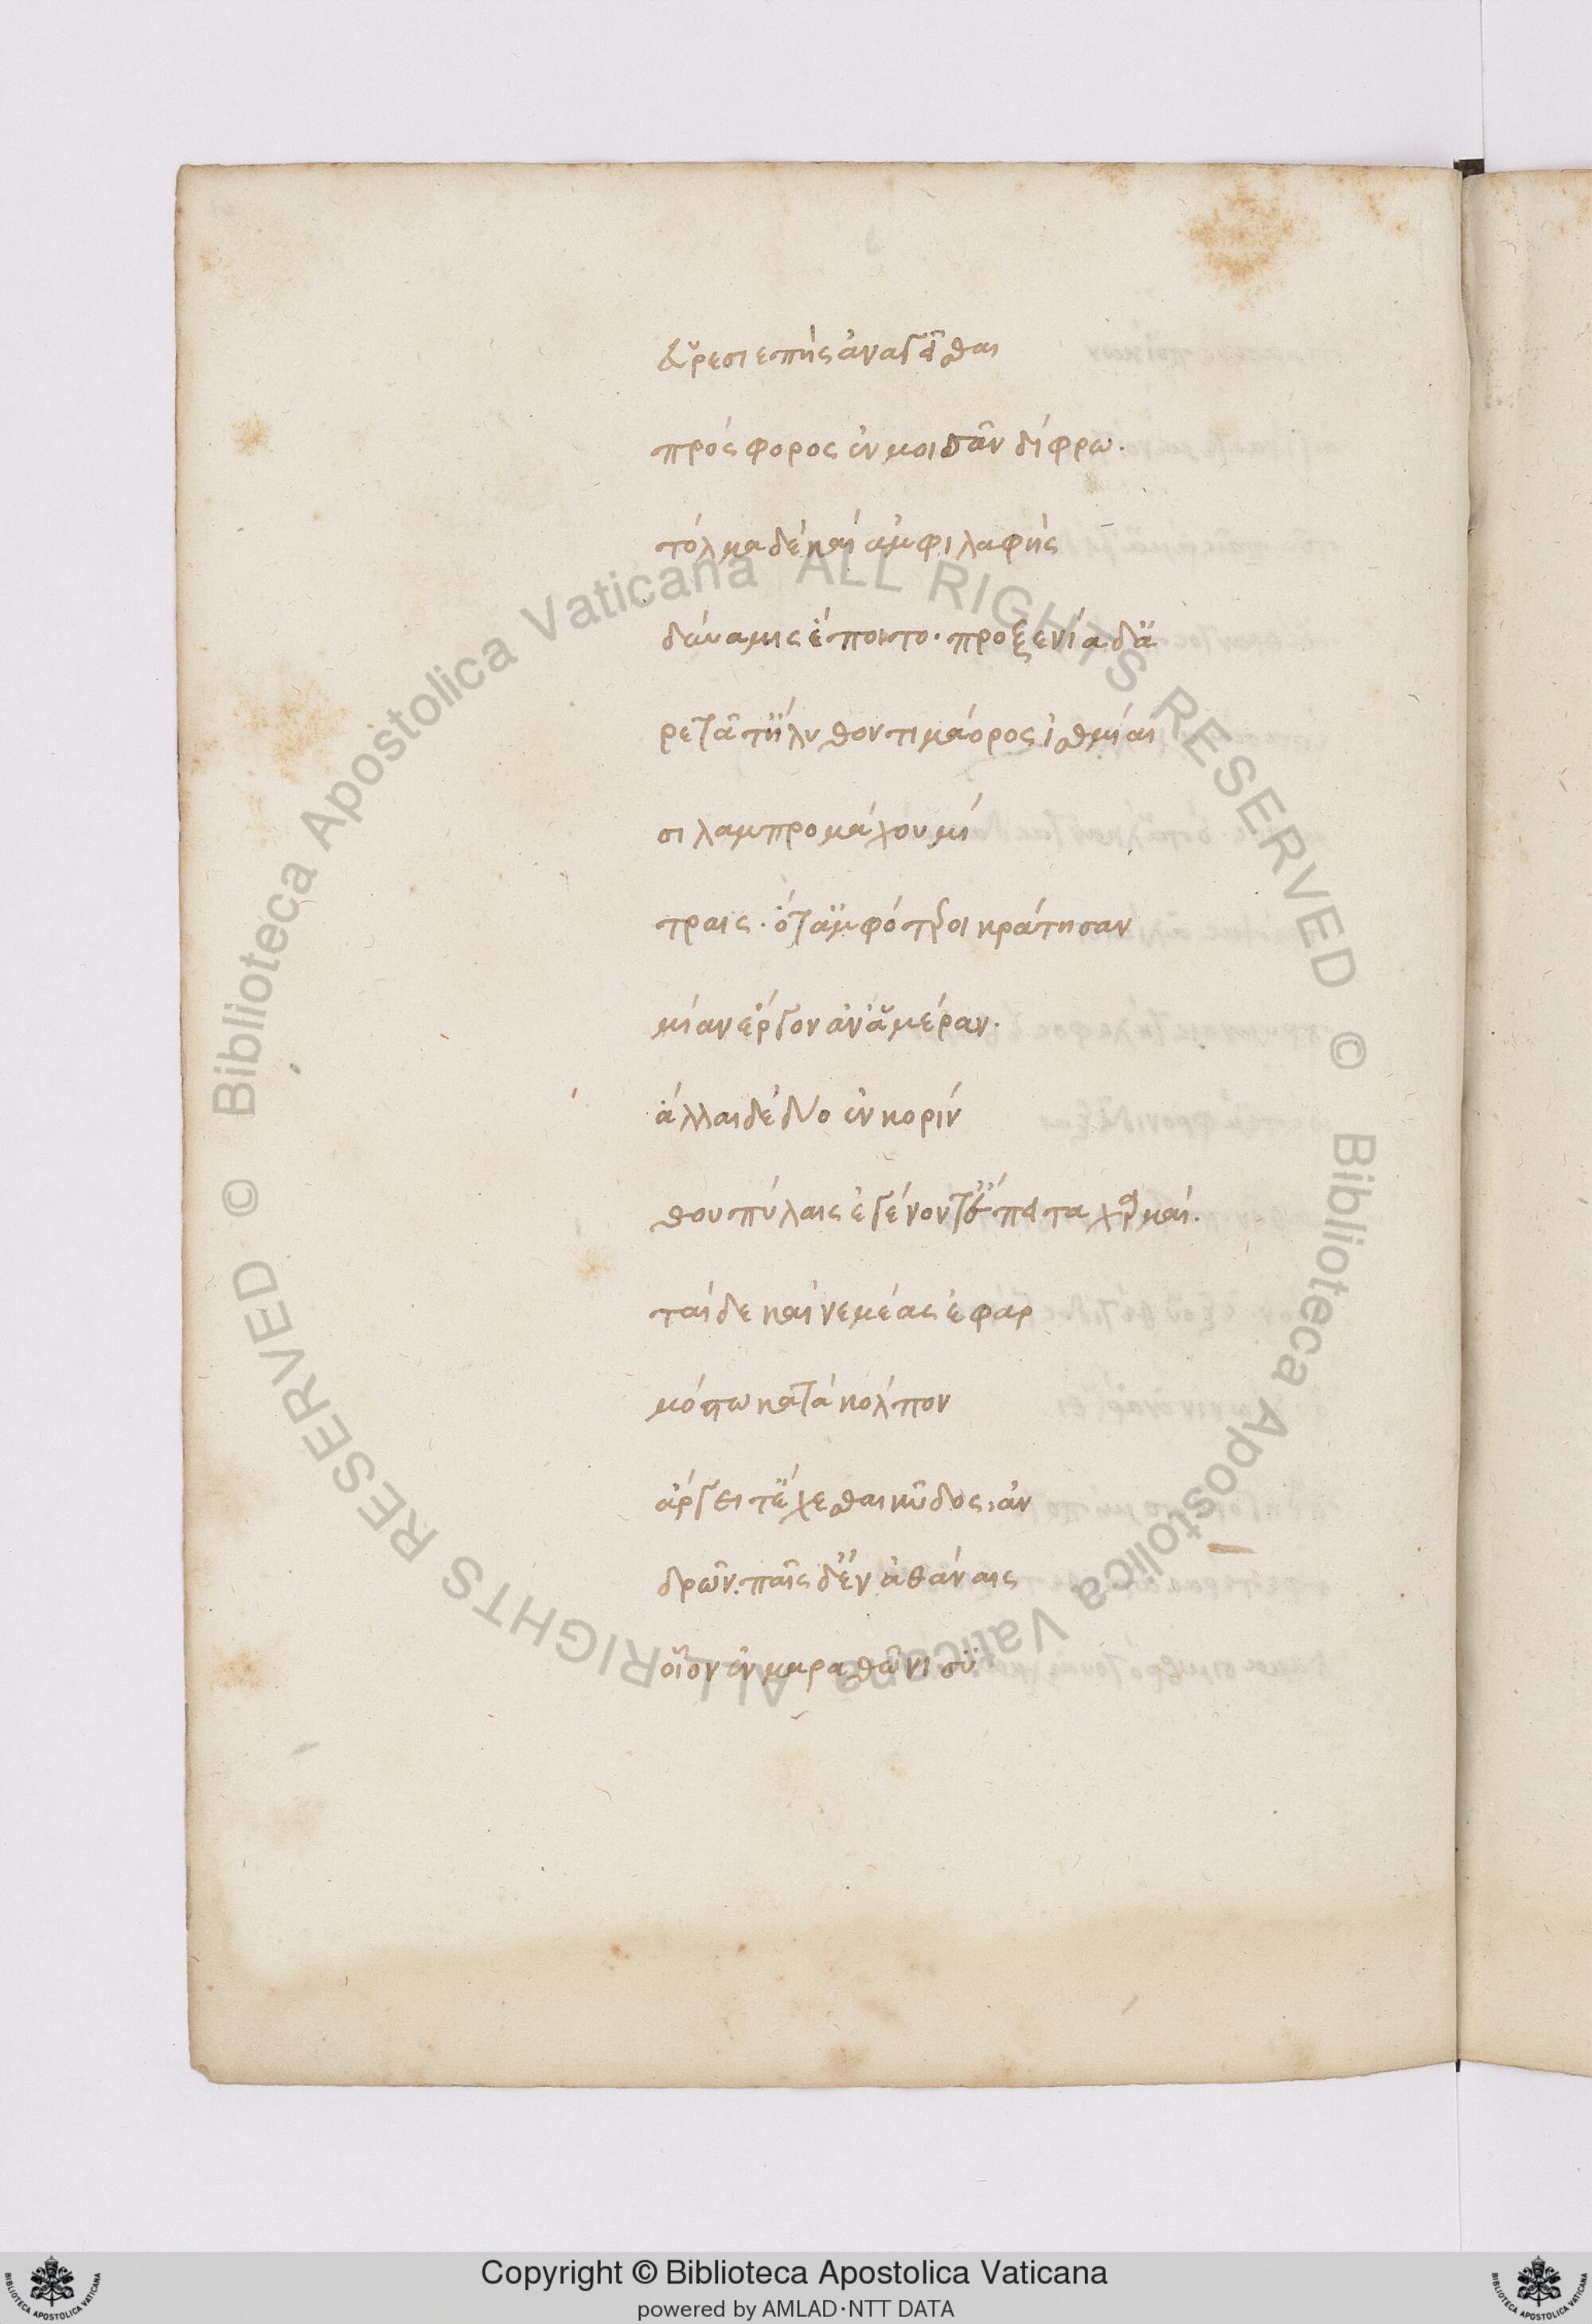 εὑρεσιεπὴς ἀναγεῖσθαι
πρόσφορος ἐν μοισᾶν δίφρω.
τόλμα δὲ καὶ ἀμφιλαφὴς
δύναμις ἕποιτο. προξενία δ' ἀ
ρετᾶ τ' ἦλυθον τιμάορος ἰσθμίαι
σι λαμπρομάχου μί
τραις. ὅτ' ἀμφότεροι κράτησαν
μίαν ἔργον ἀν' ἁμέραν.
ἄλλαι δὲ δύο ἐν κορίν
θου πύλαις ἐγένοντ' ἔπειτα χάρμαι.
ταὶ δὲ καὶ νεμέας ἐφαρ
μόστω κατὰ κόλπον
ἄργει τ' ἔσχεθαι κῦδος, ἀν
δρῶν. παῖς δ' ἐν ἀθάναις
οἷον ἐν μαραθῶνι συ
Copyright © Biblioteca Apostolica Vaticana
powered by AMLAD·NTT DATA
© Biblioteca Apostolica Vaticana ALL RIGHTS RESERVED
© Biblioteca Apostolica Vaticana ALL RIGHTS RESERVED
BIBLIOTECA APOSTOLICA VATICANA
BIBLIOTECA APOSTOLICA VATICANA